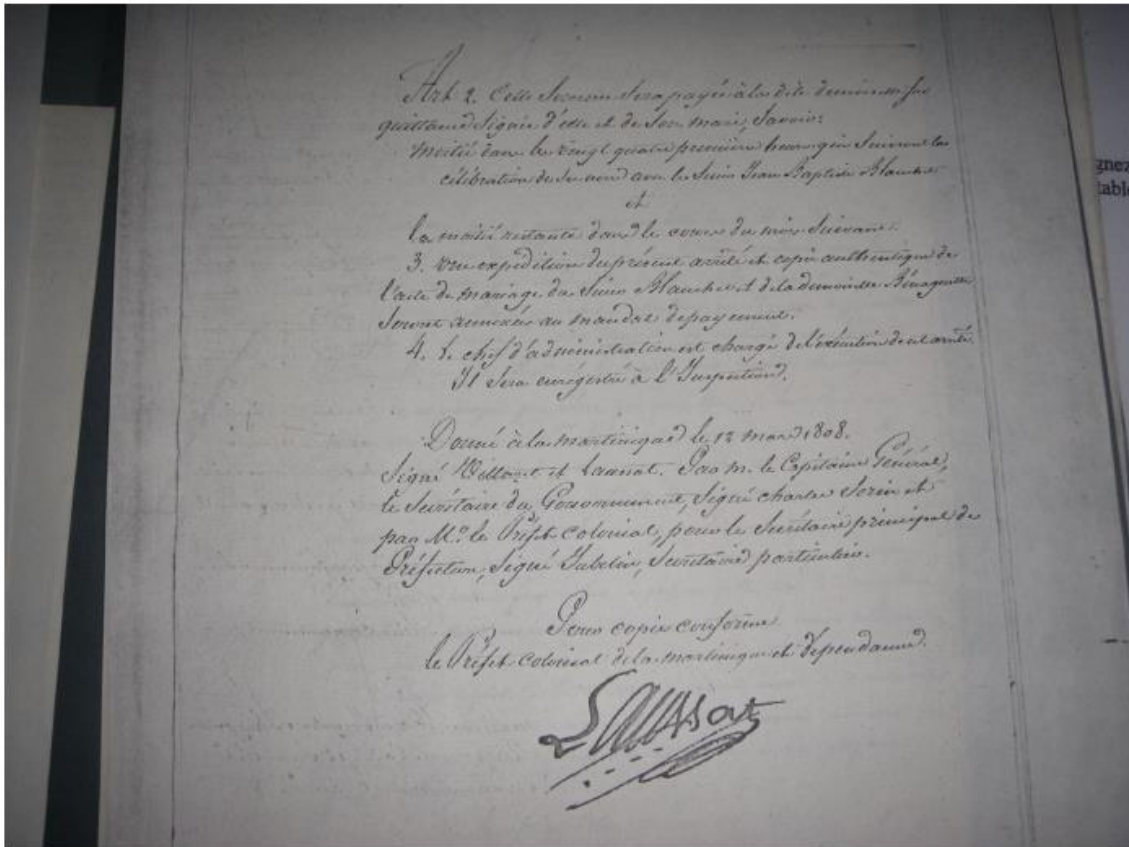 Art 2. Cette Somme Sera payée à la dite demoiselle sur
quittance Signée d'elle et de Son mari, Savoir:
moitié dans les vingt quatre première heures qui Suivront la
célébration de Ses noces avec le Sieur Jean Baptiste Blanchet
et
la moitié restante dans le cours du mois Suivant.
3. une expédition du présent arrêté et copie authentique de
l'acte de mariage du Sieur Blanchet et de la demoiselle
Seront annexées au mandat de payement.
4. le chef d'administration est chargé de l'exécution de cet arrêté.
Il Sera enregistré à l'Inspection.
Donné à la martinique le 12 mars 1808.
Signé Villaret et Laussat. Par m. le Capitaine Général,
le Secrétaire du Gouvernement, Signé charles Sorin et
par Mr. le Préfet Colonial, pour le Secrétaire principal de
Préfecture, Signé Jubelin, Secrétaire particulier.
Pour copie conforme
le Préfet Colonial de la martinique et dépendances.
Laussat
gnez
table